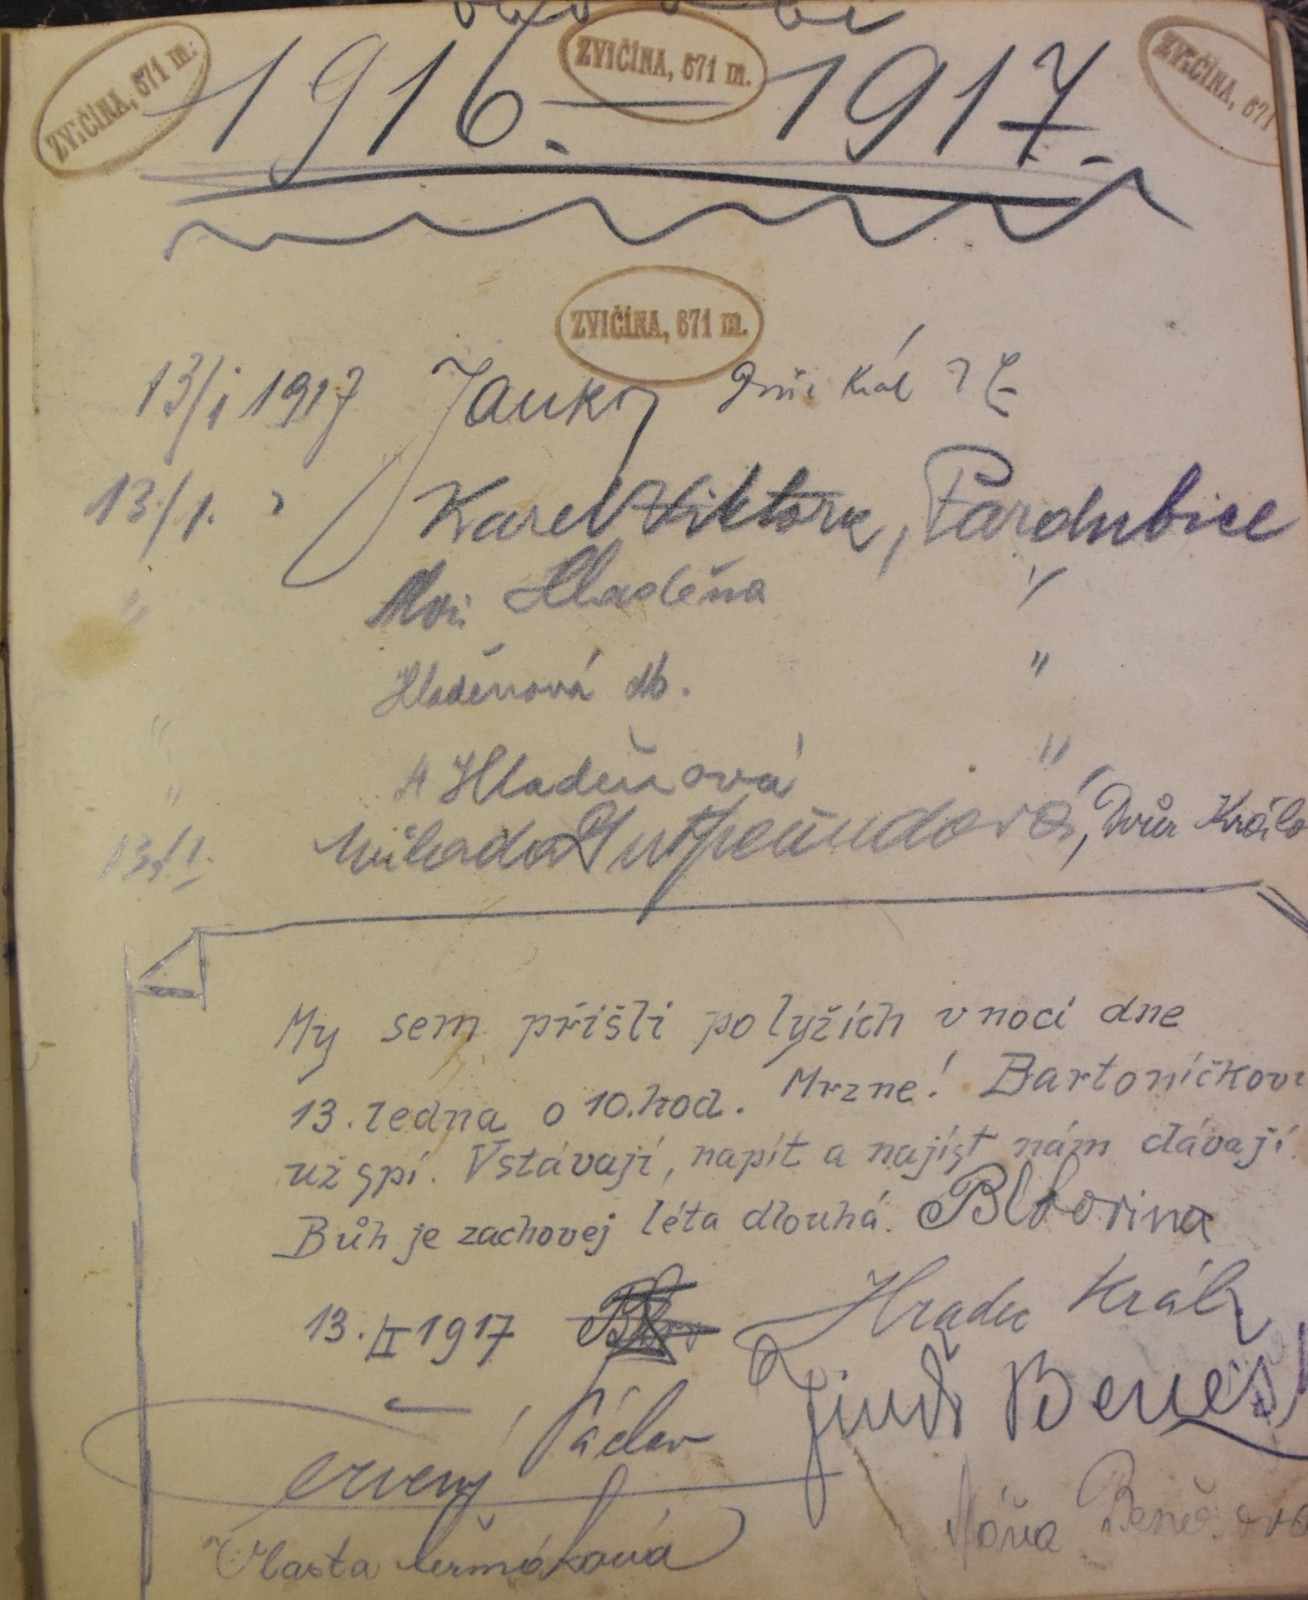 ZVIČINA, 671 m.
ZVIČINA, 671 m.
ZVIČINA, 671
1916. — 1917.
ZVIČINA, 671 m.
13/I 1917 Janko Král
13./1. " Karel Viktora, Pardubice
" Hladěna "
Hladěnová "
" A Hladěnová "
13./I. Milada Dvůr Králo
My sem přišli po lyžích v noci dne
13. ledna o 10. hod. Mrzne! Bartoníčkovi
už spí. Vstávají, napít a najíst nám dávají.
Bůh je zachovej léta dlouhá.
13. II 1917
Hradec Král
Jindř Beneš
Václav
Červený
Vlasta Čermáková
Máňa